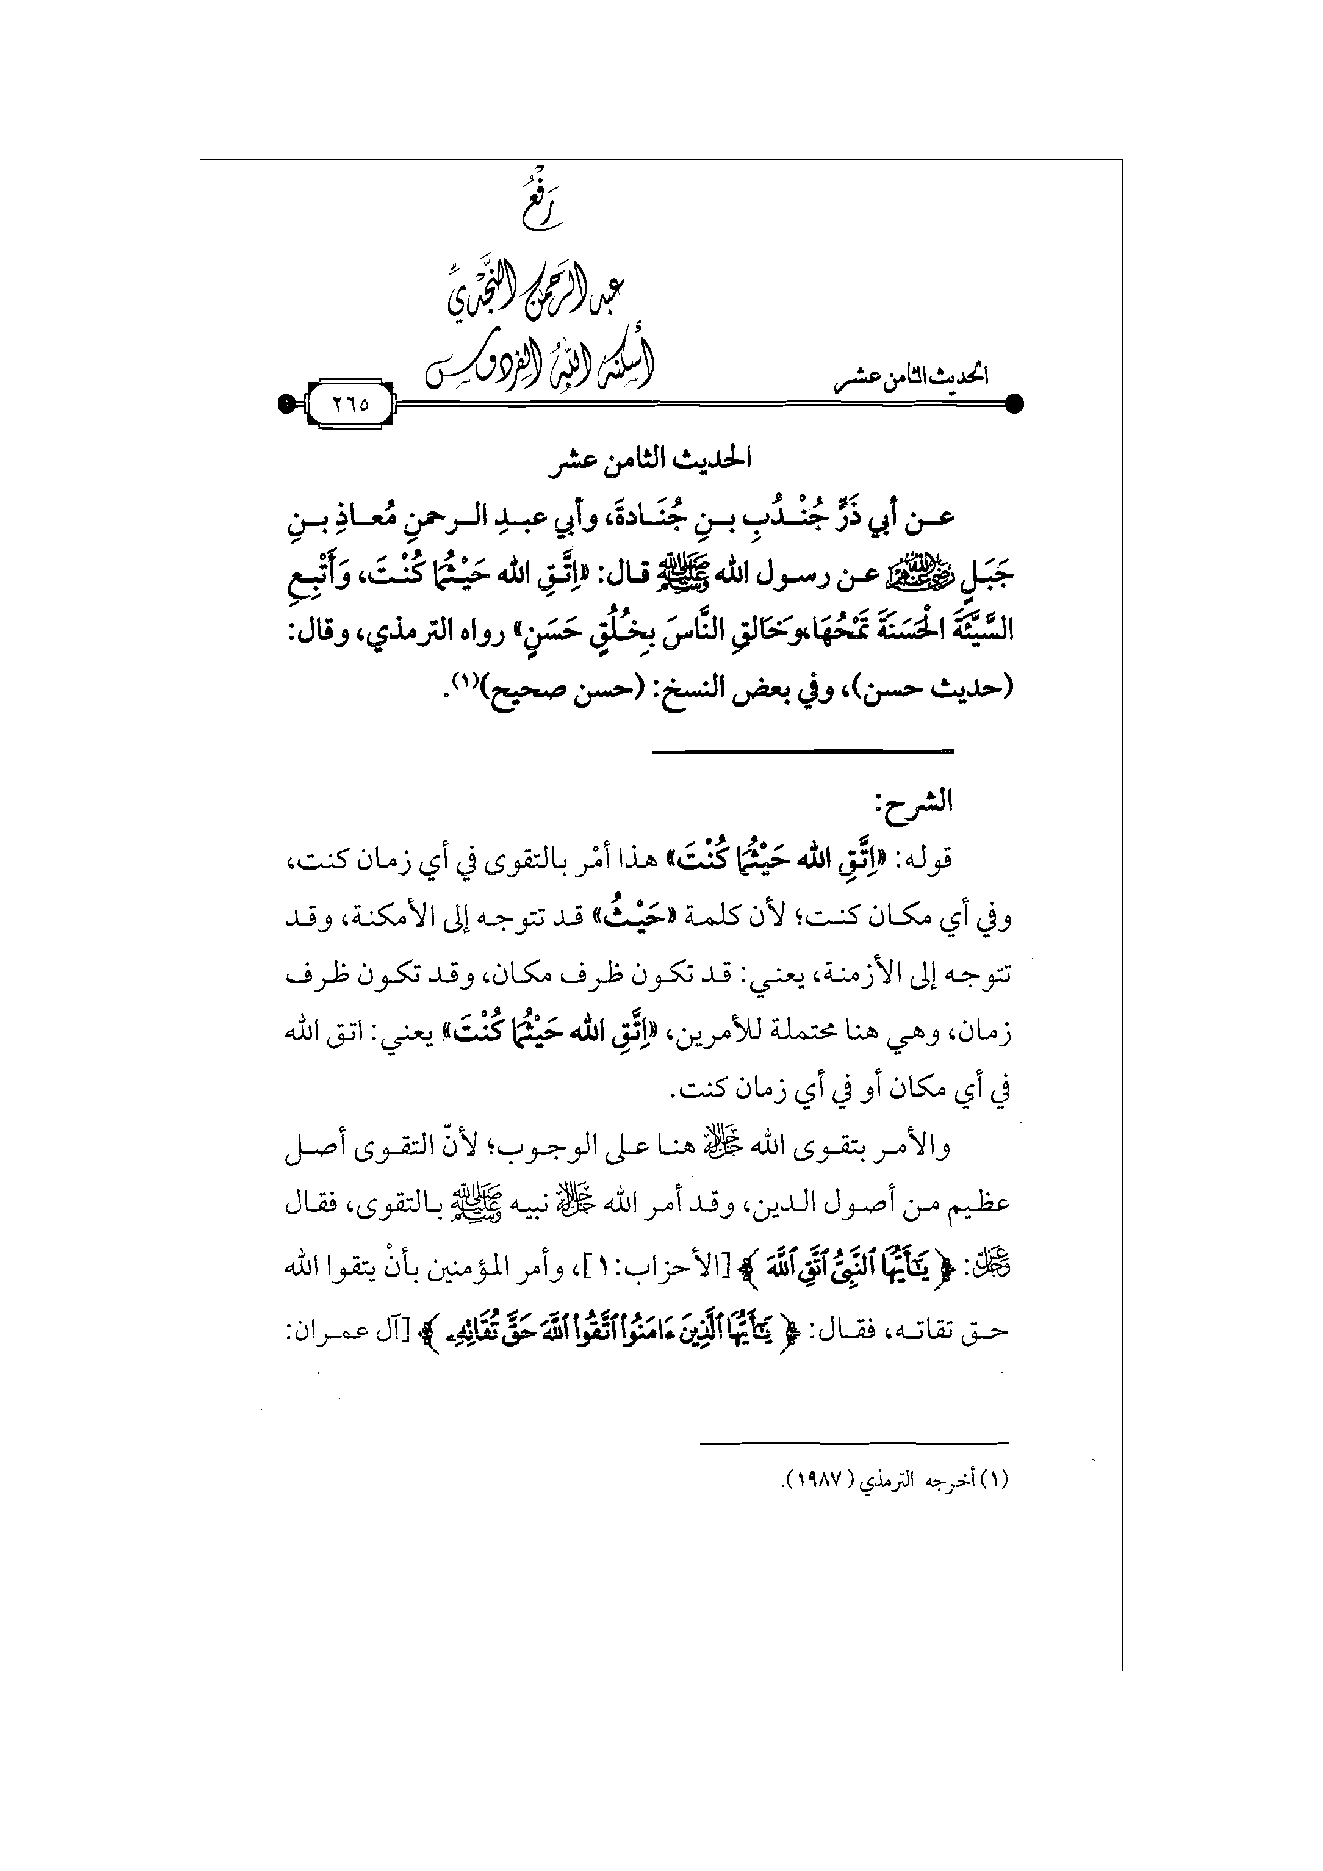 رَفْعُ
عبد الرحمن النَّجْدِيِّ
أسكنه اللّٰهُ الفردوس
الحديث الثامن عشر
٢٦٥
الحديث الثامن عشر
عن أبي ذَرٍّ جُنْدُبِ بنِ جُنَادةَ، وأبي عبدِ الرحمنِ مُعاذِ بنِ
جَبَلٍ رضي الله عنهما عن رسول الله ﷺ قال: «اِتَّقِ الله حَيْثُمَا كُنْتَ، وَأَتْبِعِ
السَّيِّئَةَ الْحَسَنَةَ تَمْحُهَا،وَخَالِقِ النَّاسَ بِخُلُقٍ حَسَنٍ» رواه الترمذي، وقال:
(حديث حسن)، وفي بعض النسخ: (حسن صحيح)(١).
الشرح:
قوله: «اِتَّقِ الله حَيْثُمَا كُنْتَ» هذا أمْر بالتقوى في أي زمان كنت،
وفي أي مكان كنت؛ لأن كلمة «حَيْثُ» قد تتوجه إلى الأمكنة، وقد
تتوجه إلى الأزمنة، يعني: قد تكون ظرف مكان، وقد تكون ظرف
زمان، وهي هنا محتملة للأمرين، «اِتَّقِ الله حَيْثُمَا كُنْتَ» يعني: اتق الله
في أي مكان أو في أي زمان كنت.
والأمر بتقوى الله ﷻ هنا على الوجوب؛ لأنّ التقوى أصل
عظيم من أصول الدين، وقد أمر الله ﷻ نبيه ﷺ بالتقوى، فقال
عز وجل: ﴿ يَٰٓأَيُّهَا ٱلنَّبِىُّ ٱتَّقِ ٱللَّهَ ﴾ [الأحزاب:١]، وأمر المؤمنين بأنْ يتقوا الله
حق تقاته، فقال: ﴿ يَٰٓأَيُّهَا ٱلَّذِينَ ءَامَنُوا۟ ٱتَّقُوا۟ ٱللَّهَ حَقَّ تُقَاتِهِۦ ﴾ [آل عمران:
(١) أخرجه الترمذي (١٩٨٧).